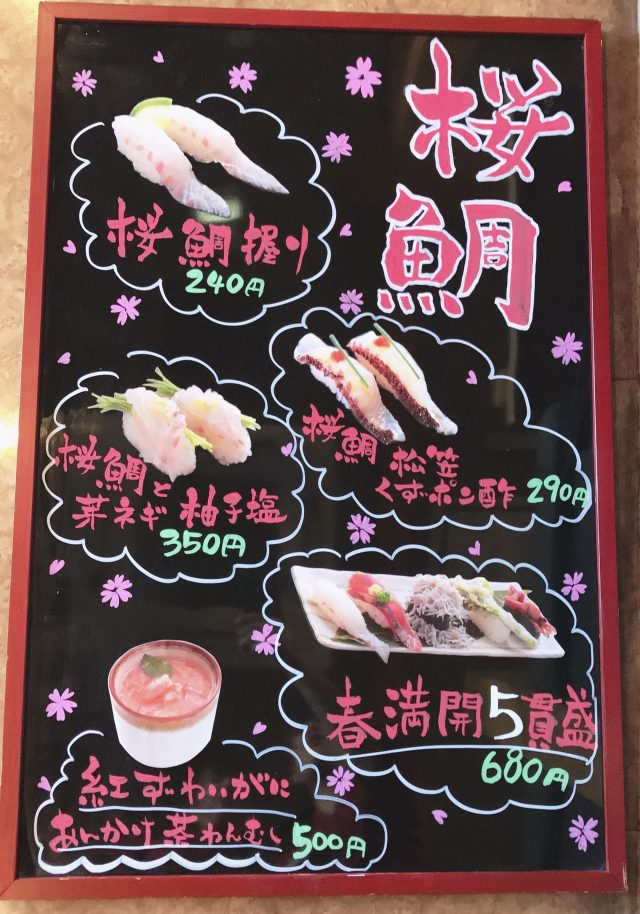 桜鯛
桜鯛握り
240円
桜鯛松笠
くずポン酢 290円
桜鯛と
芽ネギ柚子塩
350円
春満開5貫盛
680円
紅ずわいがに
あんかけ茶わんむし 500円